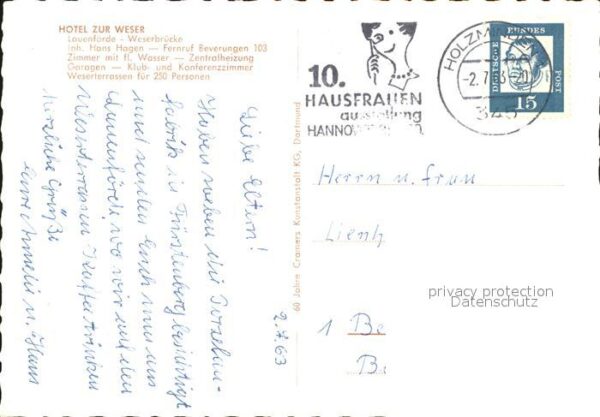 HOTEL ZUR WESER
Lauenförde - Weserbrücke
Inh. Hans Hagen — Fernruf Beverungen 103
Zimmer mit fl. Wasser — Zentralheizung
Garagen — Klub- und Konferenzzimmer
Weserterrassen für 250 Personen
10.
HAUSFRAUEN
ausstellung
HANNOVER
HOLZMINDEN
-2.7.63-20
345
DEUTSCHE BUNDESPOST
15
Liebe Eltern!
Haben soeben die Porzellan-
fabrik in Fürstenberg besichtigt
und senden Euch nun aus
Lauenförde, wo wir auf den
Weserterrassen Kaffee trinken
herzliche Grüße
Eure Annelie u. Hans
2.7.63
60 Jahre Cramers Kunstanstalt KG, Dortmund
Herrn u. Frau
Lienh
1 Be
Ba
privacy protection
Datenschutz